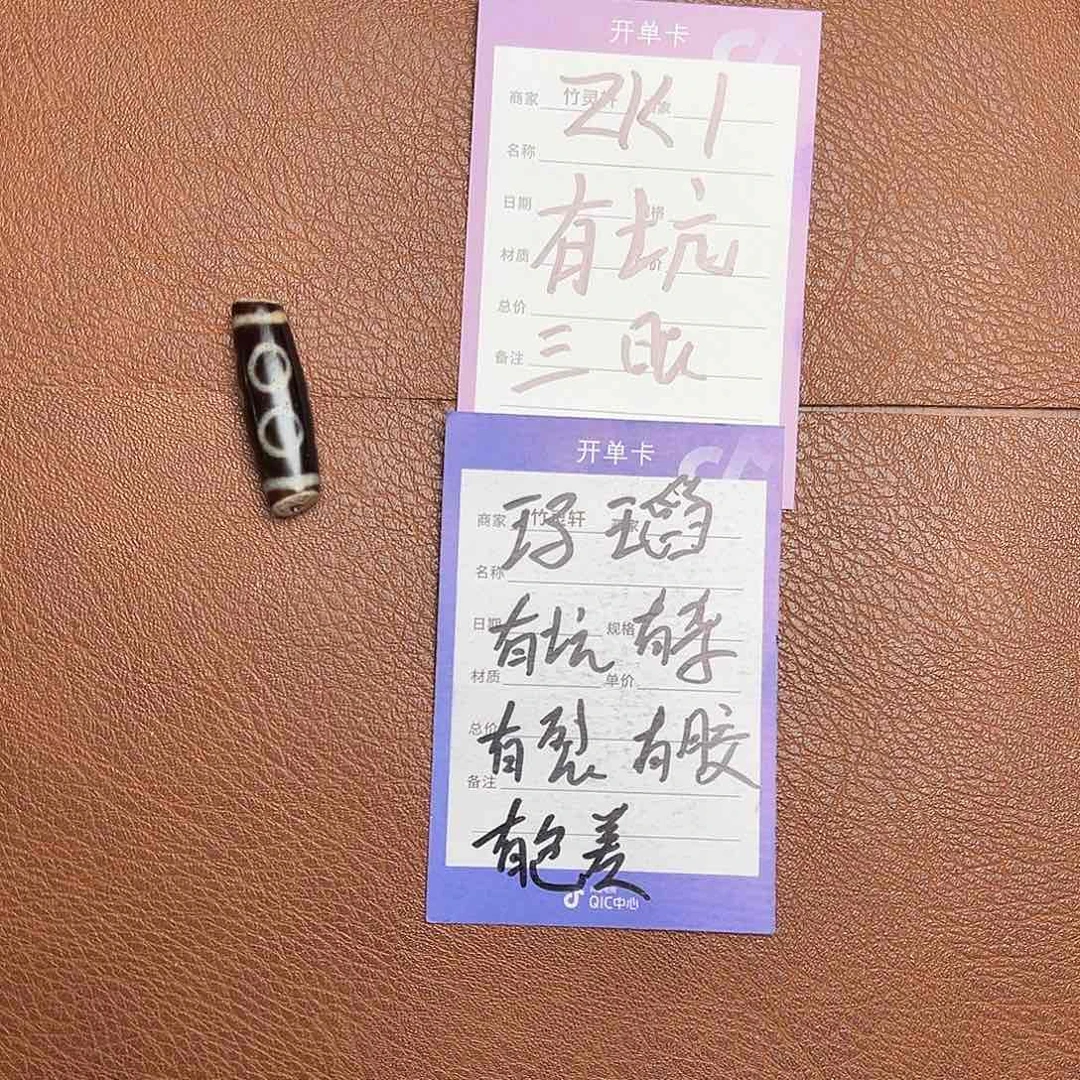 开单卡
商家 竹灵轩
ZK1
名称
日期
有坑
材质
总价
三眼
备注
开单卡
商家 竹灵轩
玛瑙
名称
日期 规格
有坑 有杂
材质 单价
总价
有裂 有胶
备注
有色差
QIC中心